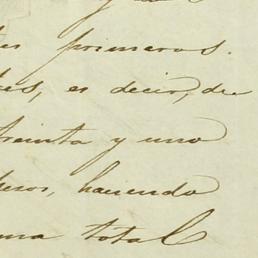 primeros.
es decir, de
treinta y uno
pesos, haciendo
una total